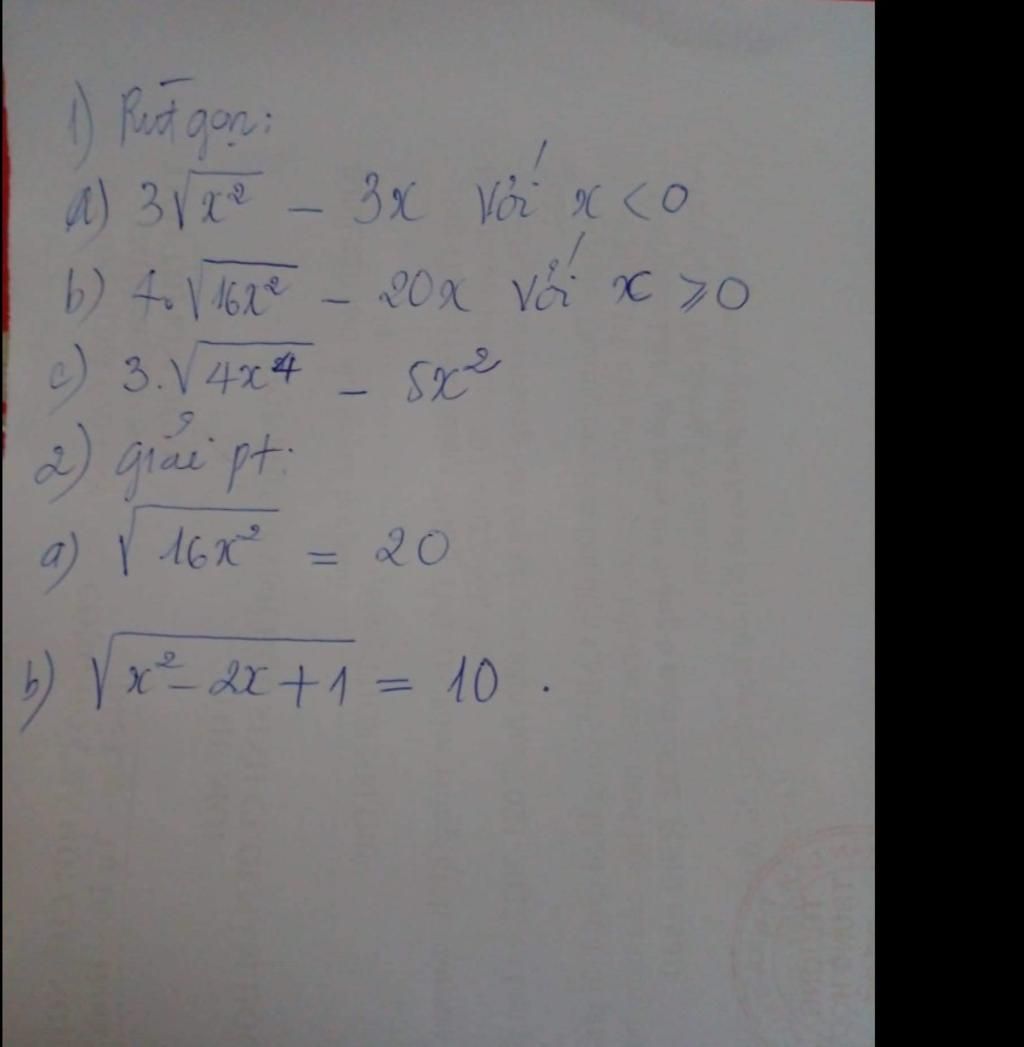 1) Rút gọn:
a) 3√x² - 3x với x < 0
b) 7.√16x² - 20x với x ≥ 0
c) 3.√4x⁴ - 5x²
2) giải pt:
a) √16x² = 20
b) √x² - 2x + 1 = 10 .